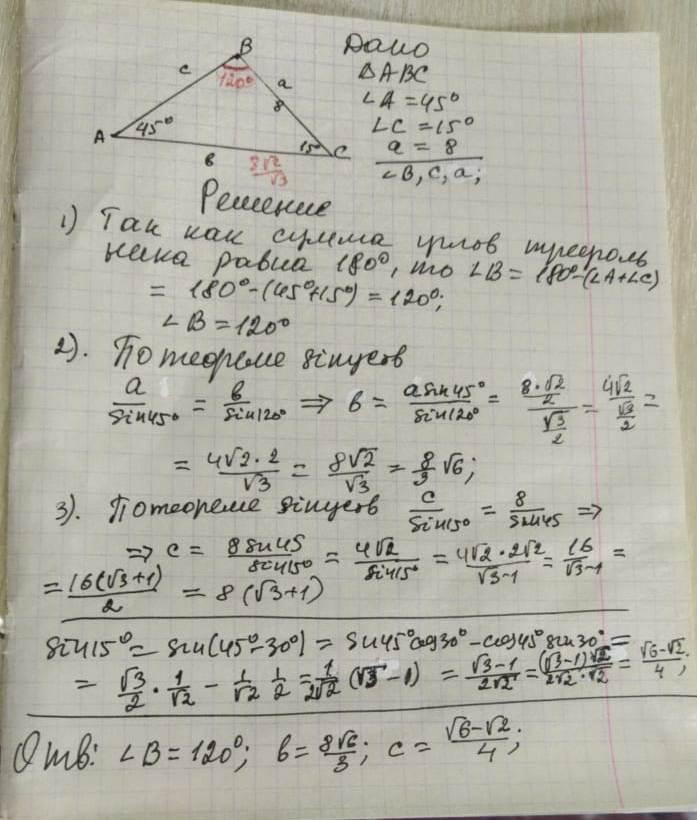 B
c
120°
a
8
A
45°
15°
C
в
8√2/√3
Дано
△ABC
∠A = 45°
∠C = 15°
a = 8
∠B, C, a;
Решение
1) Так как сумма углов треуголь
ника равна 180°, то ∠B = 180° - (∠A+∠C)
= 180° - (45°+15°) = 120°;
∠B = 120°
2). По теореме sinусов
a/sin45° = в/sin120° ⇒ в = a sin45°/sin120° = (8·√2/2)/(√3/2) = 4√2/(√3/2) =
= 4√2·2/√3 = 8√2/√3 = 8/3 √6;
3). По теореме sinусов c/sin15° = 8/sin45 ⇒
⇒ c = 8sin45/sin15° = 4√2/sin15° = 4√2·2√2/(√3-1) = 16/(√3-1) =
= 16(√3+1)/2 = 8(√3+1)
sin15° = sin(45°-30°) = sin45°cos30° - cos45°sin30° =
= √3/2 · 1/√2 - 1/√2 1/2 = 1/2√2 (√3 - 1) = (√3-1)/2√2 = (√3-1)√2/2√2·√2 = (√6-√2)/4;
Отв: ∠B = 120°; в = 8√6/3; c = (√6-√2)/4;